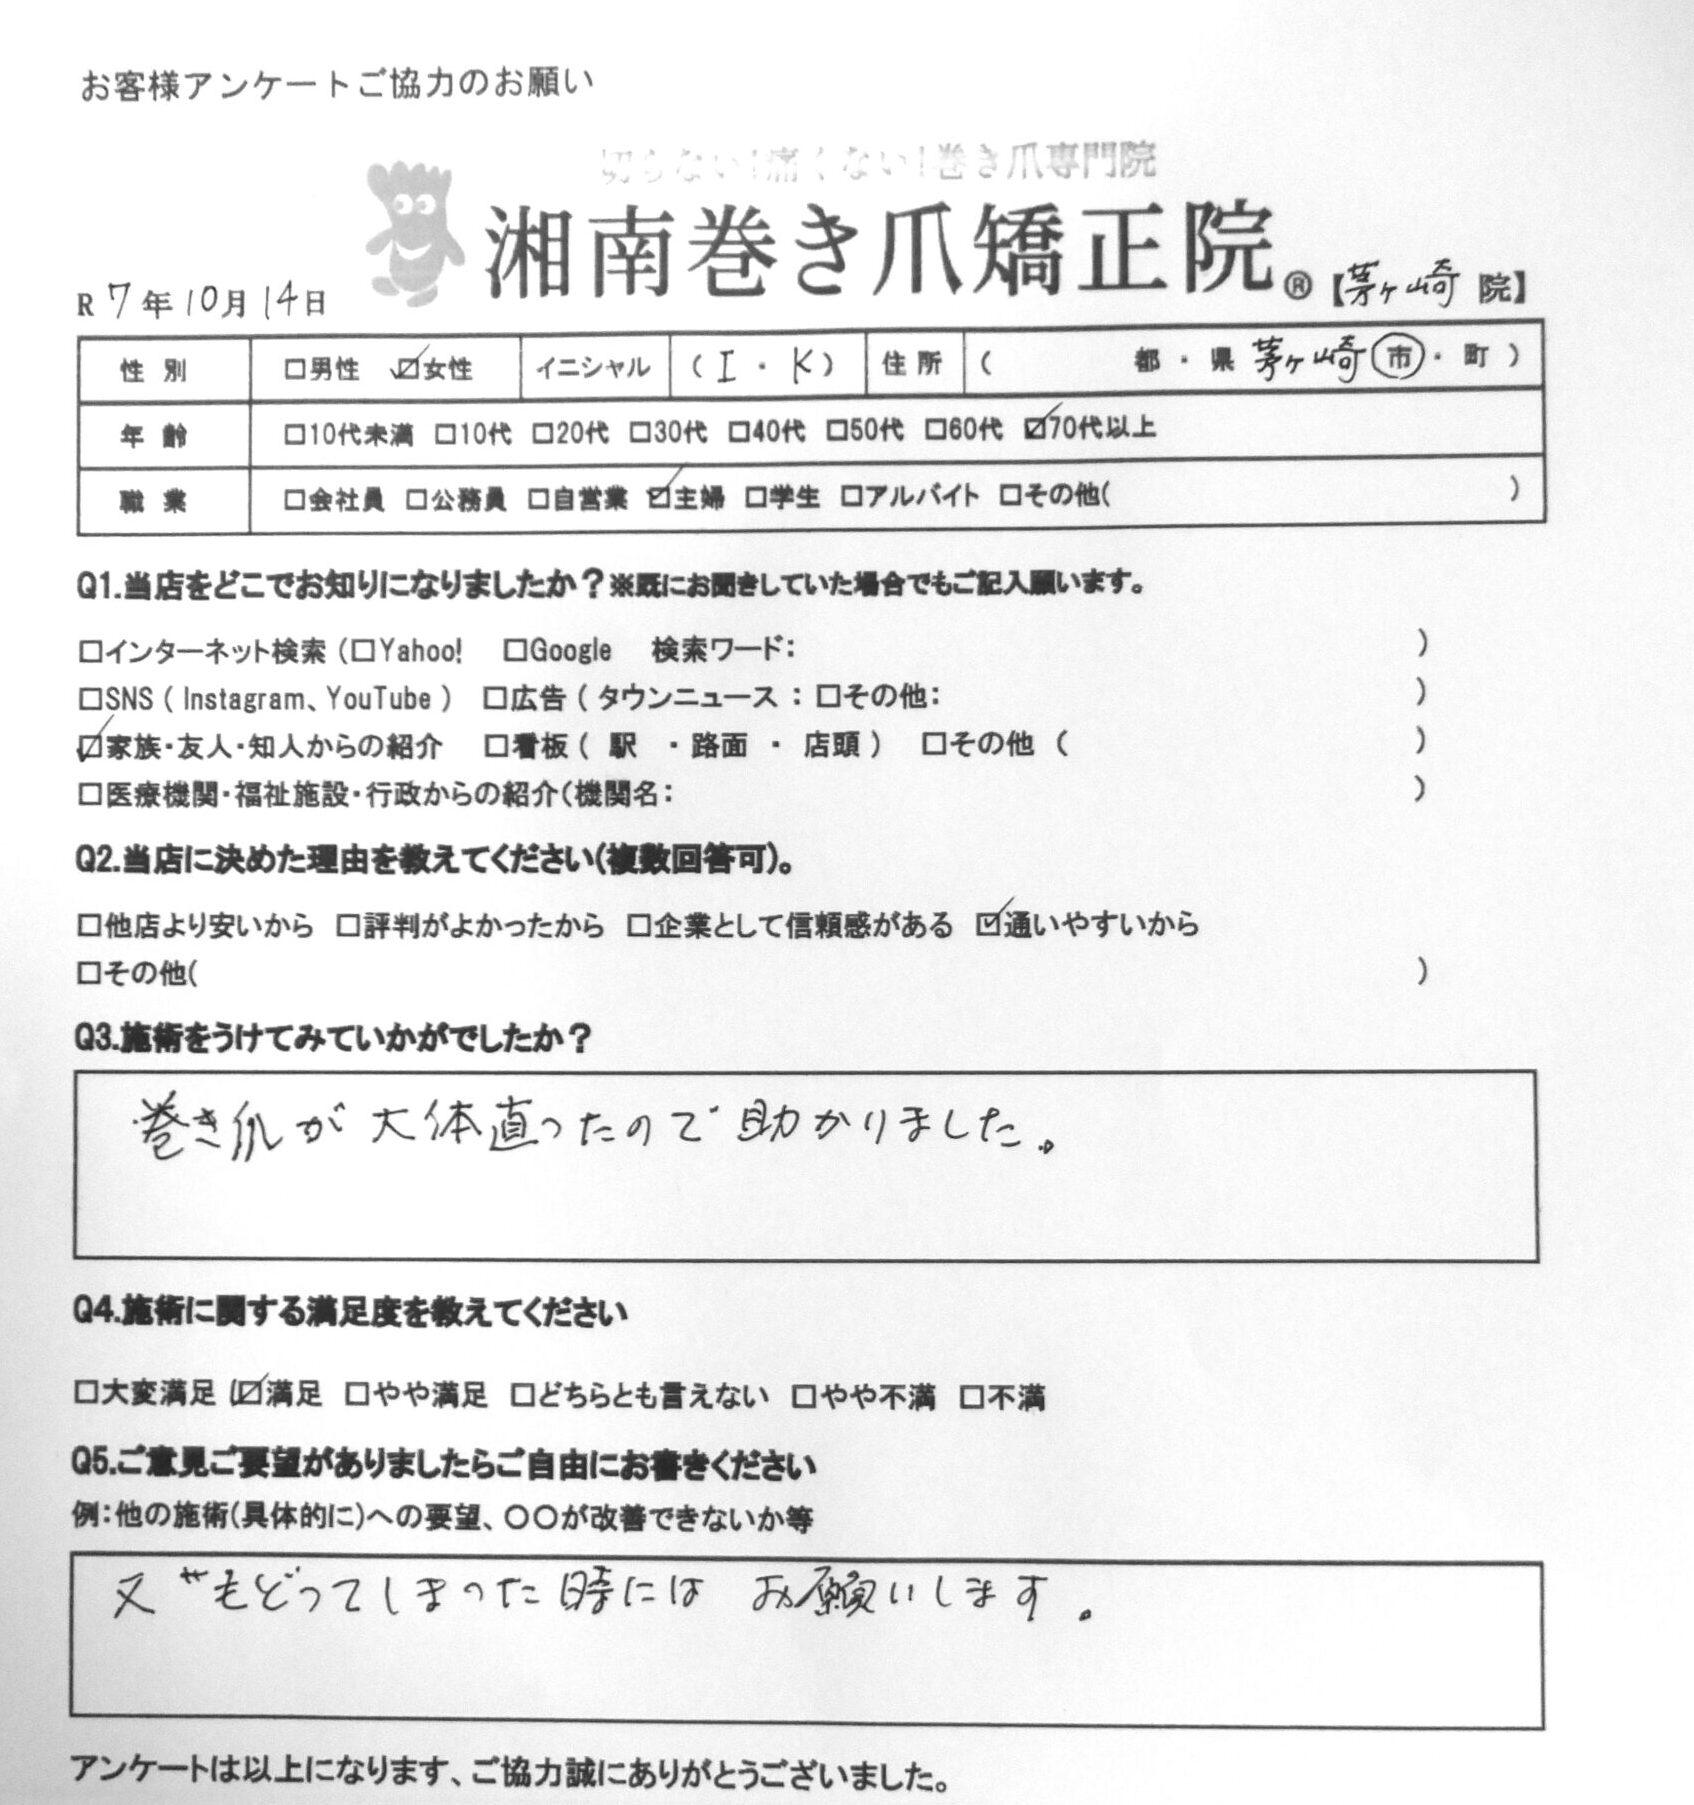 お客様アンケートご協力のお願い
切らない！痛くない！巻き爪専門院
湘南巻き爪矯正院® 【茅ヶ崎 院】
R 7 年 10 月 14 日
性別 □男性 ☑女性 イニシャル ( I ・ K ) 住所 ( 都 ・ 県 茅ヶ崎 市 ・ 町 )
年齢 □10代未満 □10代 □20代 □30代 □40代 □50代 □60代 ☑70代以上
職業 □会社員 □公務員 □自営業 ☑主婦 □学生 □アルバイト □その他( )
Q1.当店をどこでお知りになりましたか？※既にお聞きしていた場合でもご記入願います。
□インターネット検索 (□Yahoo! □Google 検索ワード： )
□SNS ( Instagram、YouTube ) □広告 ( タウンニュース ： □その他： )
☑家族・友人・知人からの紹介 □看板 ( 駅 ・路面 ・ 店頭 ) □その他 ( )
□医療機関・福祉施設・行政からの紹介(機関名： )
Q2.当店に決めた理由を教えてください(複数回答可)。
□他店より安いから □評判がよかったから □企業として信頼感がある ☑通いやすいから
□その他( )
Q3.施術をうけてみていかがでしたか？
巻き爪が大体直ったので助かりました。
Q4.施術に関する満足度を教えてください
□大変満足 ☑満足 □やや満足 □どちらとも言えない □やや不満 □不満
Q5.ご意見ご要望がありましたらご自由にお書きください
例：他の施術(具体的に)への要望、〇〇が改善できないか等
又もどってしまった時にはお願いします。
アンケートは以上になります、ご協力誠にありがとうございました。